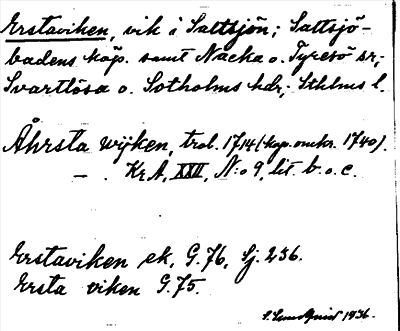 Erstaviken, vik i Saltsjön; Saltsjö-
badens köp. samt Nacka o. Tyresö sr;
Svartlösa o. Sotholms hdr; Sthlms l.
Åhrsta wijken, trol. 1714 (kop. omkr. 1740).
— . KrA, XXII, N:o 9, lit. b. o. c.
Erstaviken ek, G. 76, Sj. 236.
Ersta viken G. 75.
S. Lundquist 1936.